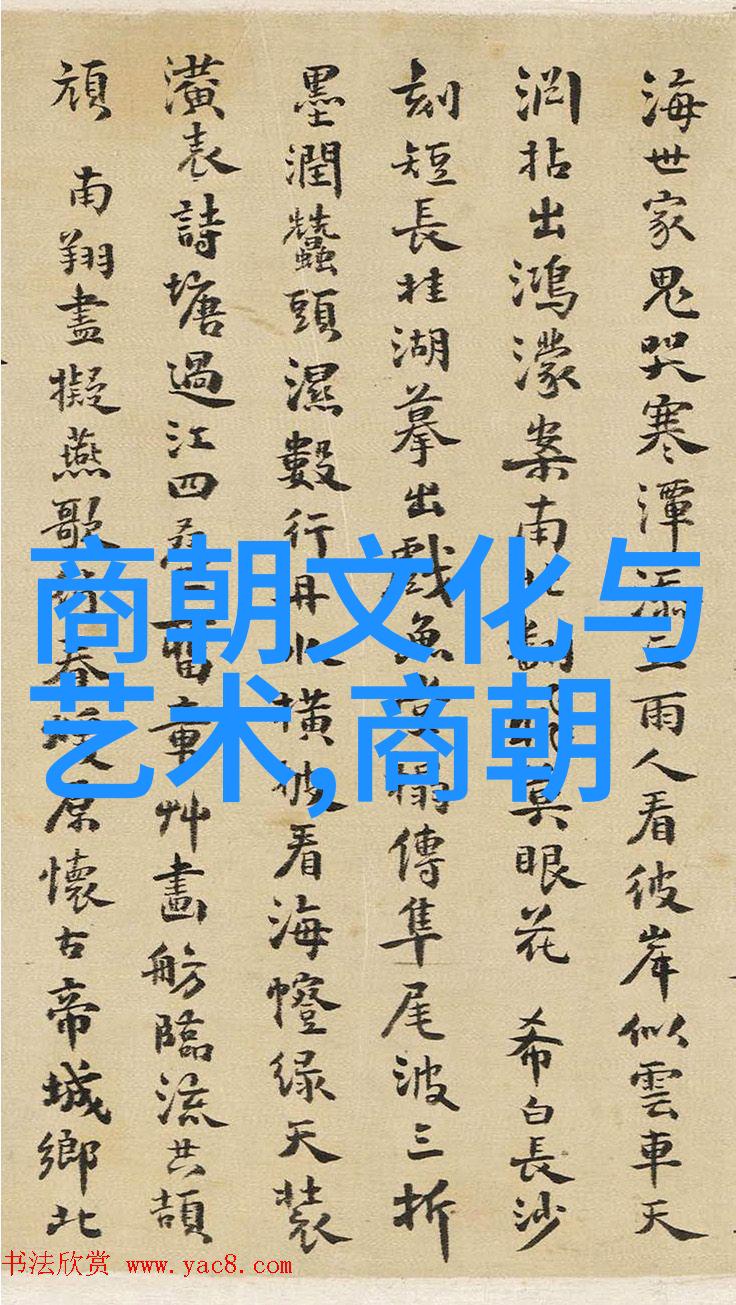 海世家鬼哭寒潭添三雨人看彼岸似雲車天
渊拈出鴻濛案南北眼花 希白長沙
刻短長桂湖摹出戲魚堂搨傳隼尾波三折
墨潤蠶頭濕數行丹水橫披看海幢绿天裝
潢表詩塘過江四疊章艸畫舫臨流共頡
頏 南翔盡擬燕歌原懷古帝城鄉北
商朝文化与
艺术,商朝
书法欣赏 www.yac8.com